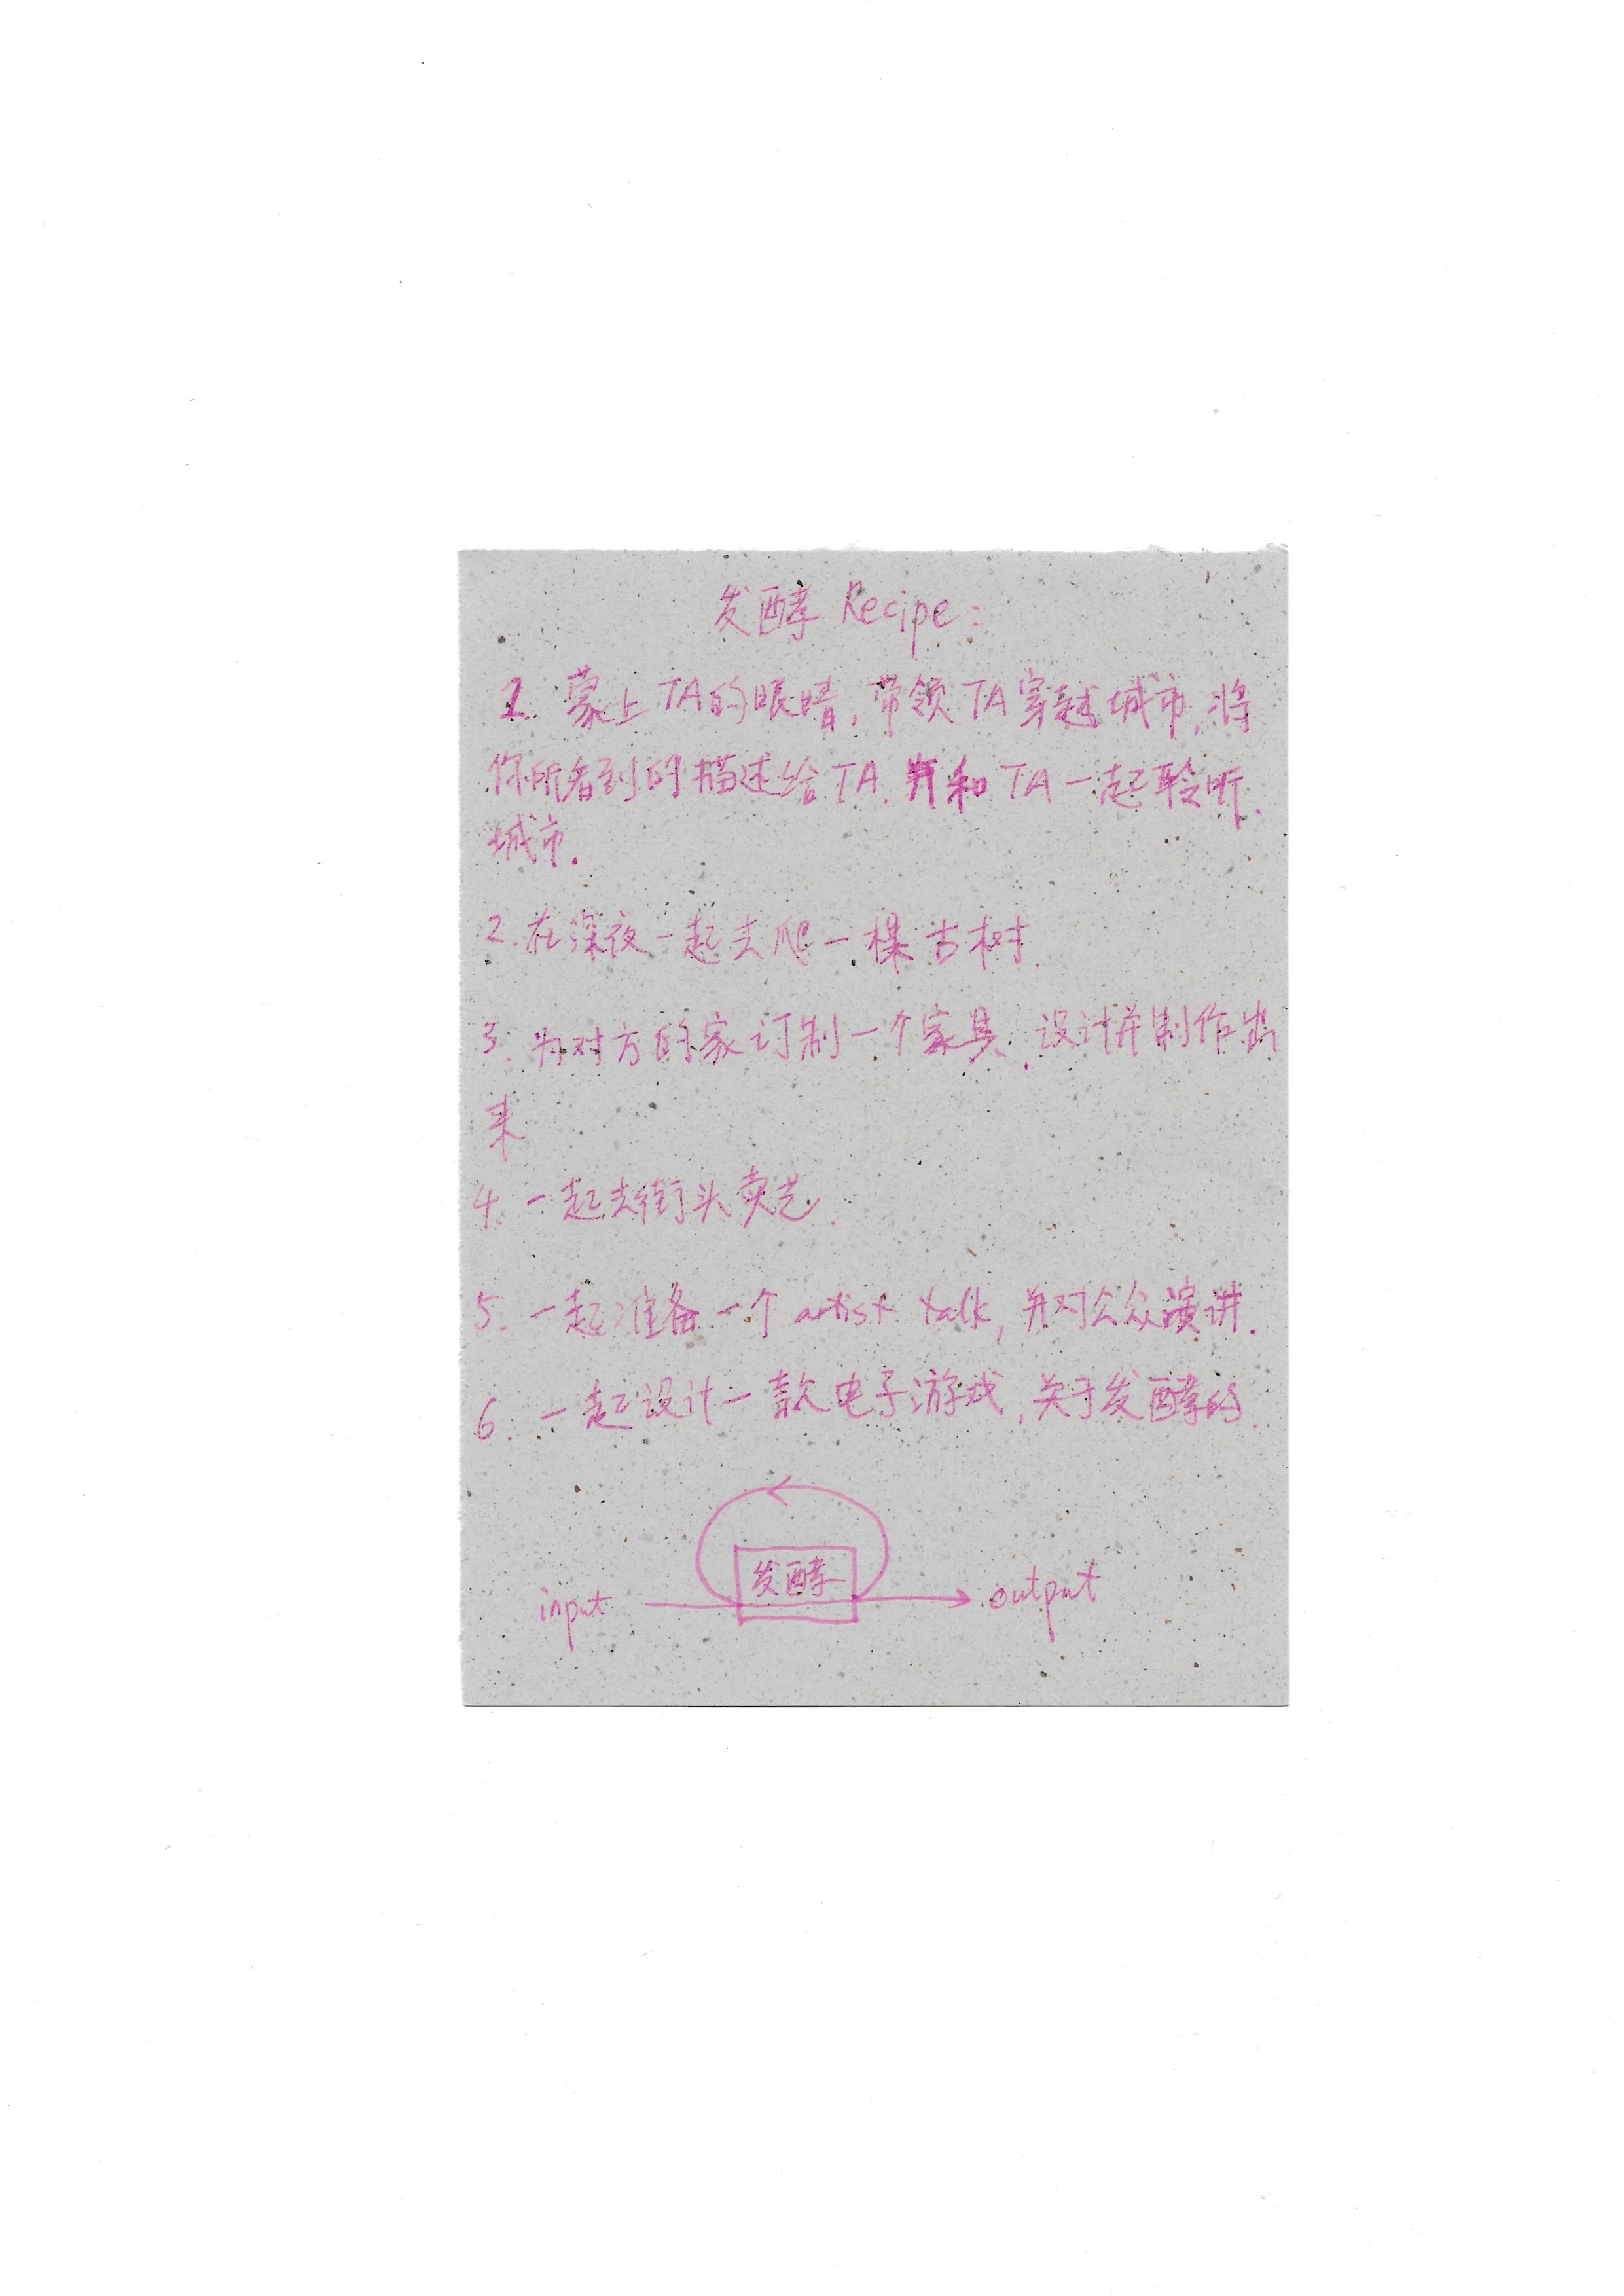 发酵 Recipe:
1. 蒙上TA的眼睛,带领TA穿越城市,将
你所看到的描述给TA.并和TA一起聆听
城市.
2.在深夜一起去爬一棵古树.
3.为对方的家订制一个家具,设计并制作出
来
4.一起去街头卖艺.
5.一起准备一个artist talk,并对公众演讲.
6.一起设计一款电子游戏,关于发酵的.
发酵
input
output